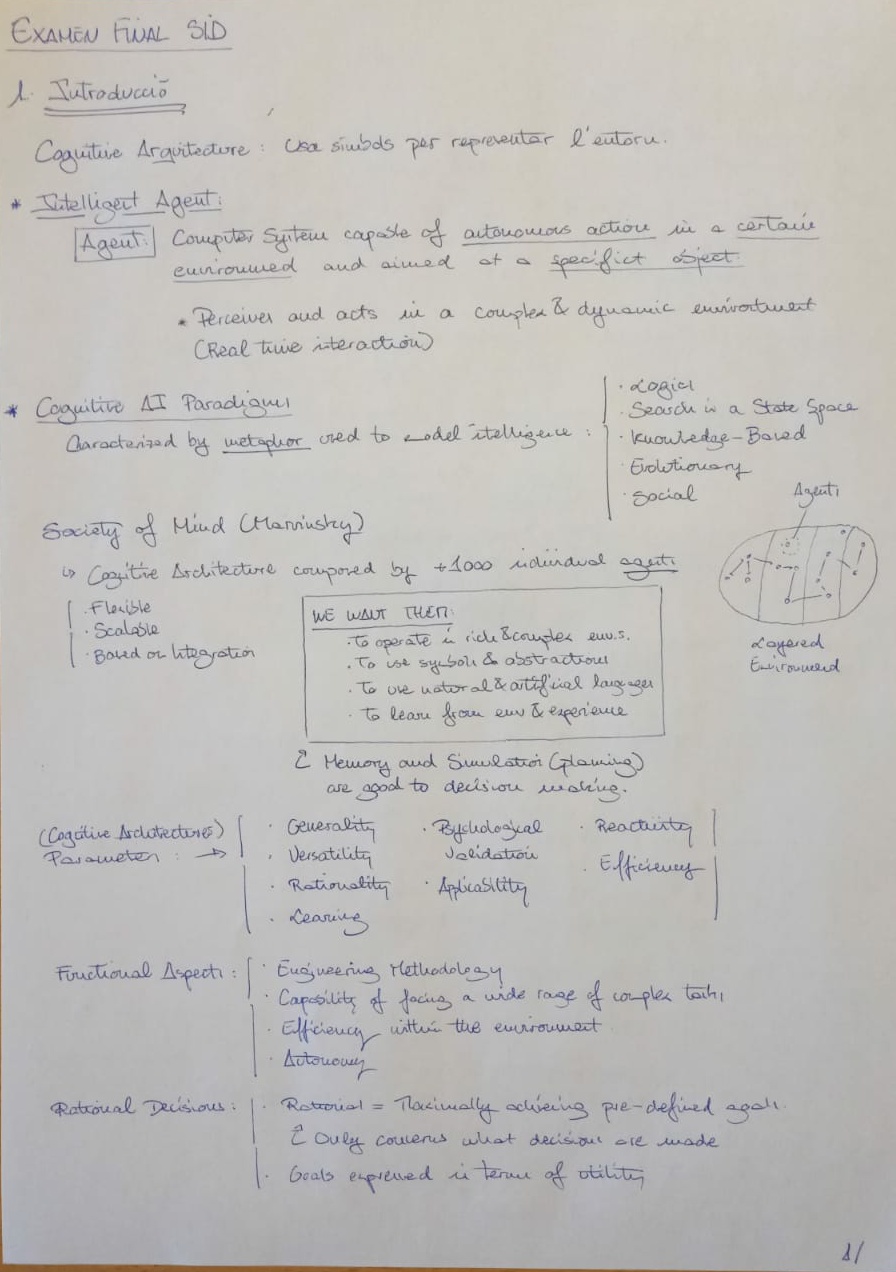 EXAMEN FINAL SID
1. Introducció
Cognitive Arquitecture: Usa símbols per representar l'entorn.
* Intelligent Agent:
Agent: Computer System capable of autonomous action in a certain
environmed and aimed at a specifict object.
* Perceives and acts in a complex & dynamic environtment
(Real time interaction)
* Cognitive AI Paradigms
Characterized by metaphor used to model intelligence:
· Logics
· Search in a State Space
· Knowledge-Based
· Evolutionary
· Social
Society of Mind (Marvinsky)
↳ Cognitive Architecture composed by +1000 individual agents
· Flexible
· Scalable
· Based on Integration
WE WANT THEM:
· To operate in rich & complex env.s.
· To use symbols & abstractions
· To use natural & artificial languages
· To learn from env & experience
Agents
Layered
Environmed
Memory and Simulation (planning)
are good to decision making.
(Cognitive Architectures)
Parameters: →
· Generality
· Versatility
· Rationality
· Learning
· Psychological
Validation
· Applicability
· Reactivity
· Efficiency
Functional Aspects:
· Engineering Methodology
· Capability of facing a wide rage of complex tasks
· Efficiency within the environment
· Autonomy
Rational Decisions:
· Rational = Maximally achieving pre-defined goals.
Only concerns what decisions are made
· Goals expressed in terms of utility
1/